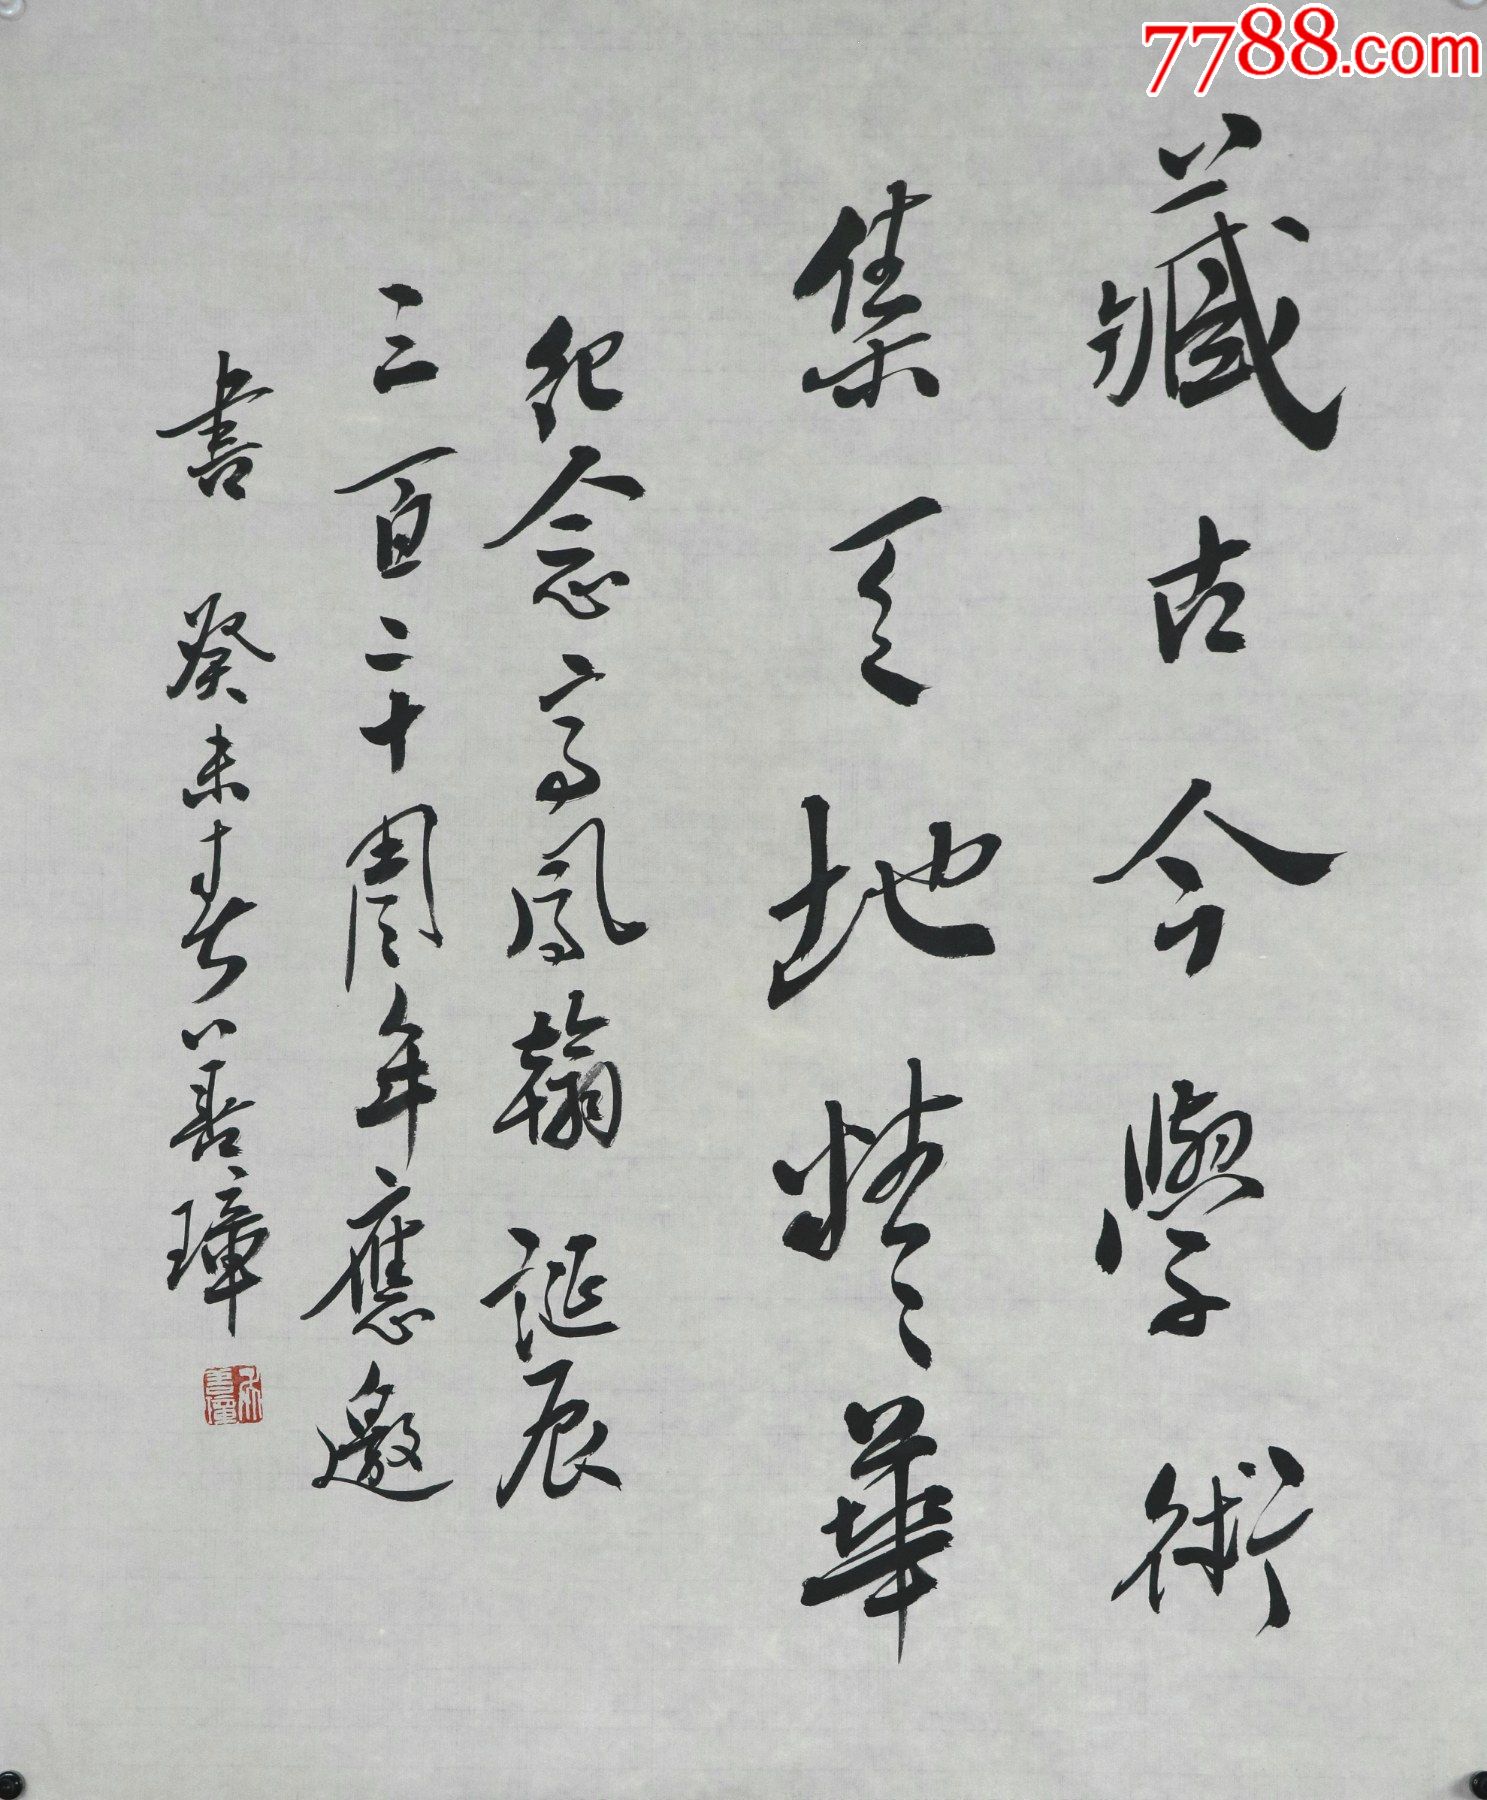 7788.com
藏古今學術
集天地精華
紀念高鳳翰誕辰
三百二十周年應邀
書 癸未春 善璋